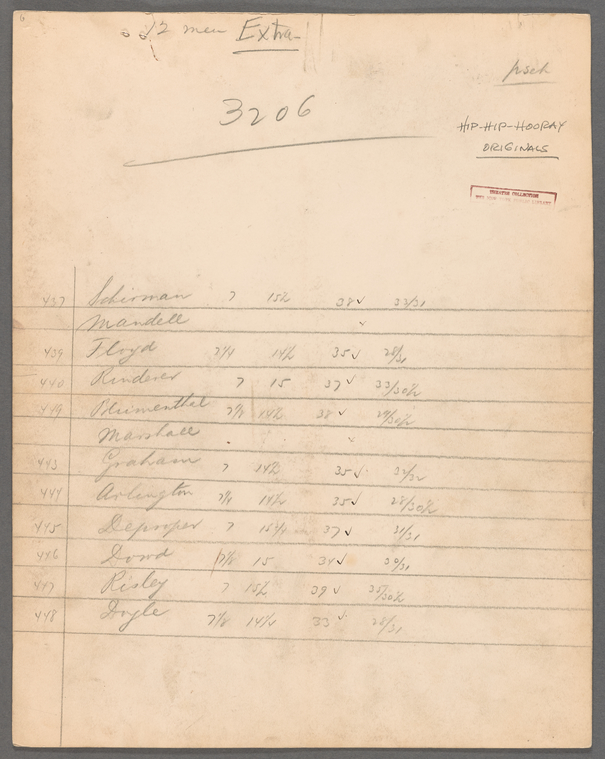 6
12 men Extra-
3206
HIP-HIP-HOORAY
ORIGINALS
THEATRE COLLECTION
NEW YORK PUBLIC LIBRARY
437 Schirman 7 15½ 38 ✓ 33/31
Mandell ✓
439 Floyd 7¼ 14½ 35 ✓ 28/31
440 Rinderer 7 15 37 ✓ 33/30½
449 Blumenthal 7⅛ 14½ 38 ✓ 29/30½
Marshall ✓
443 Graham 7 14½ 35 ✓ 32/32
444 Arlington 7⅛ 14½ 35 ✓ 28/30½
445 Deproper 7 37 ✓ 31/31
446 Dowd 7⅛ 15 34 ✓ 30/31
447 Risley 7 15½ 39 ✓ 35/30½
448 Doyle 7⅛ 14½ 33 ✓ 28/31